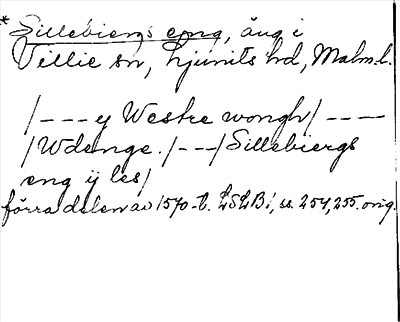 *Sillebiergs eng, äng i
Villie sn, Ljunits hd, Malm.l.
/---y Westre wongh/----
/Wdenge./---/Sillebiergs
eng ij les/
förra delen av 1570-t. LSLB1, ss. 254,255. orig.